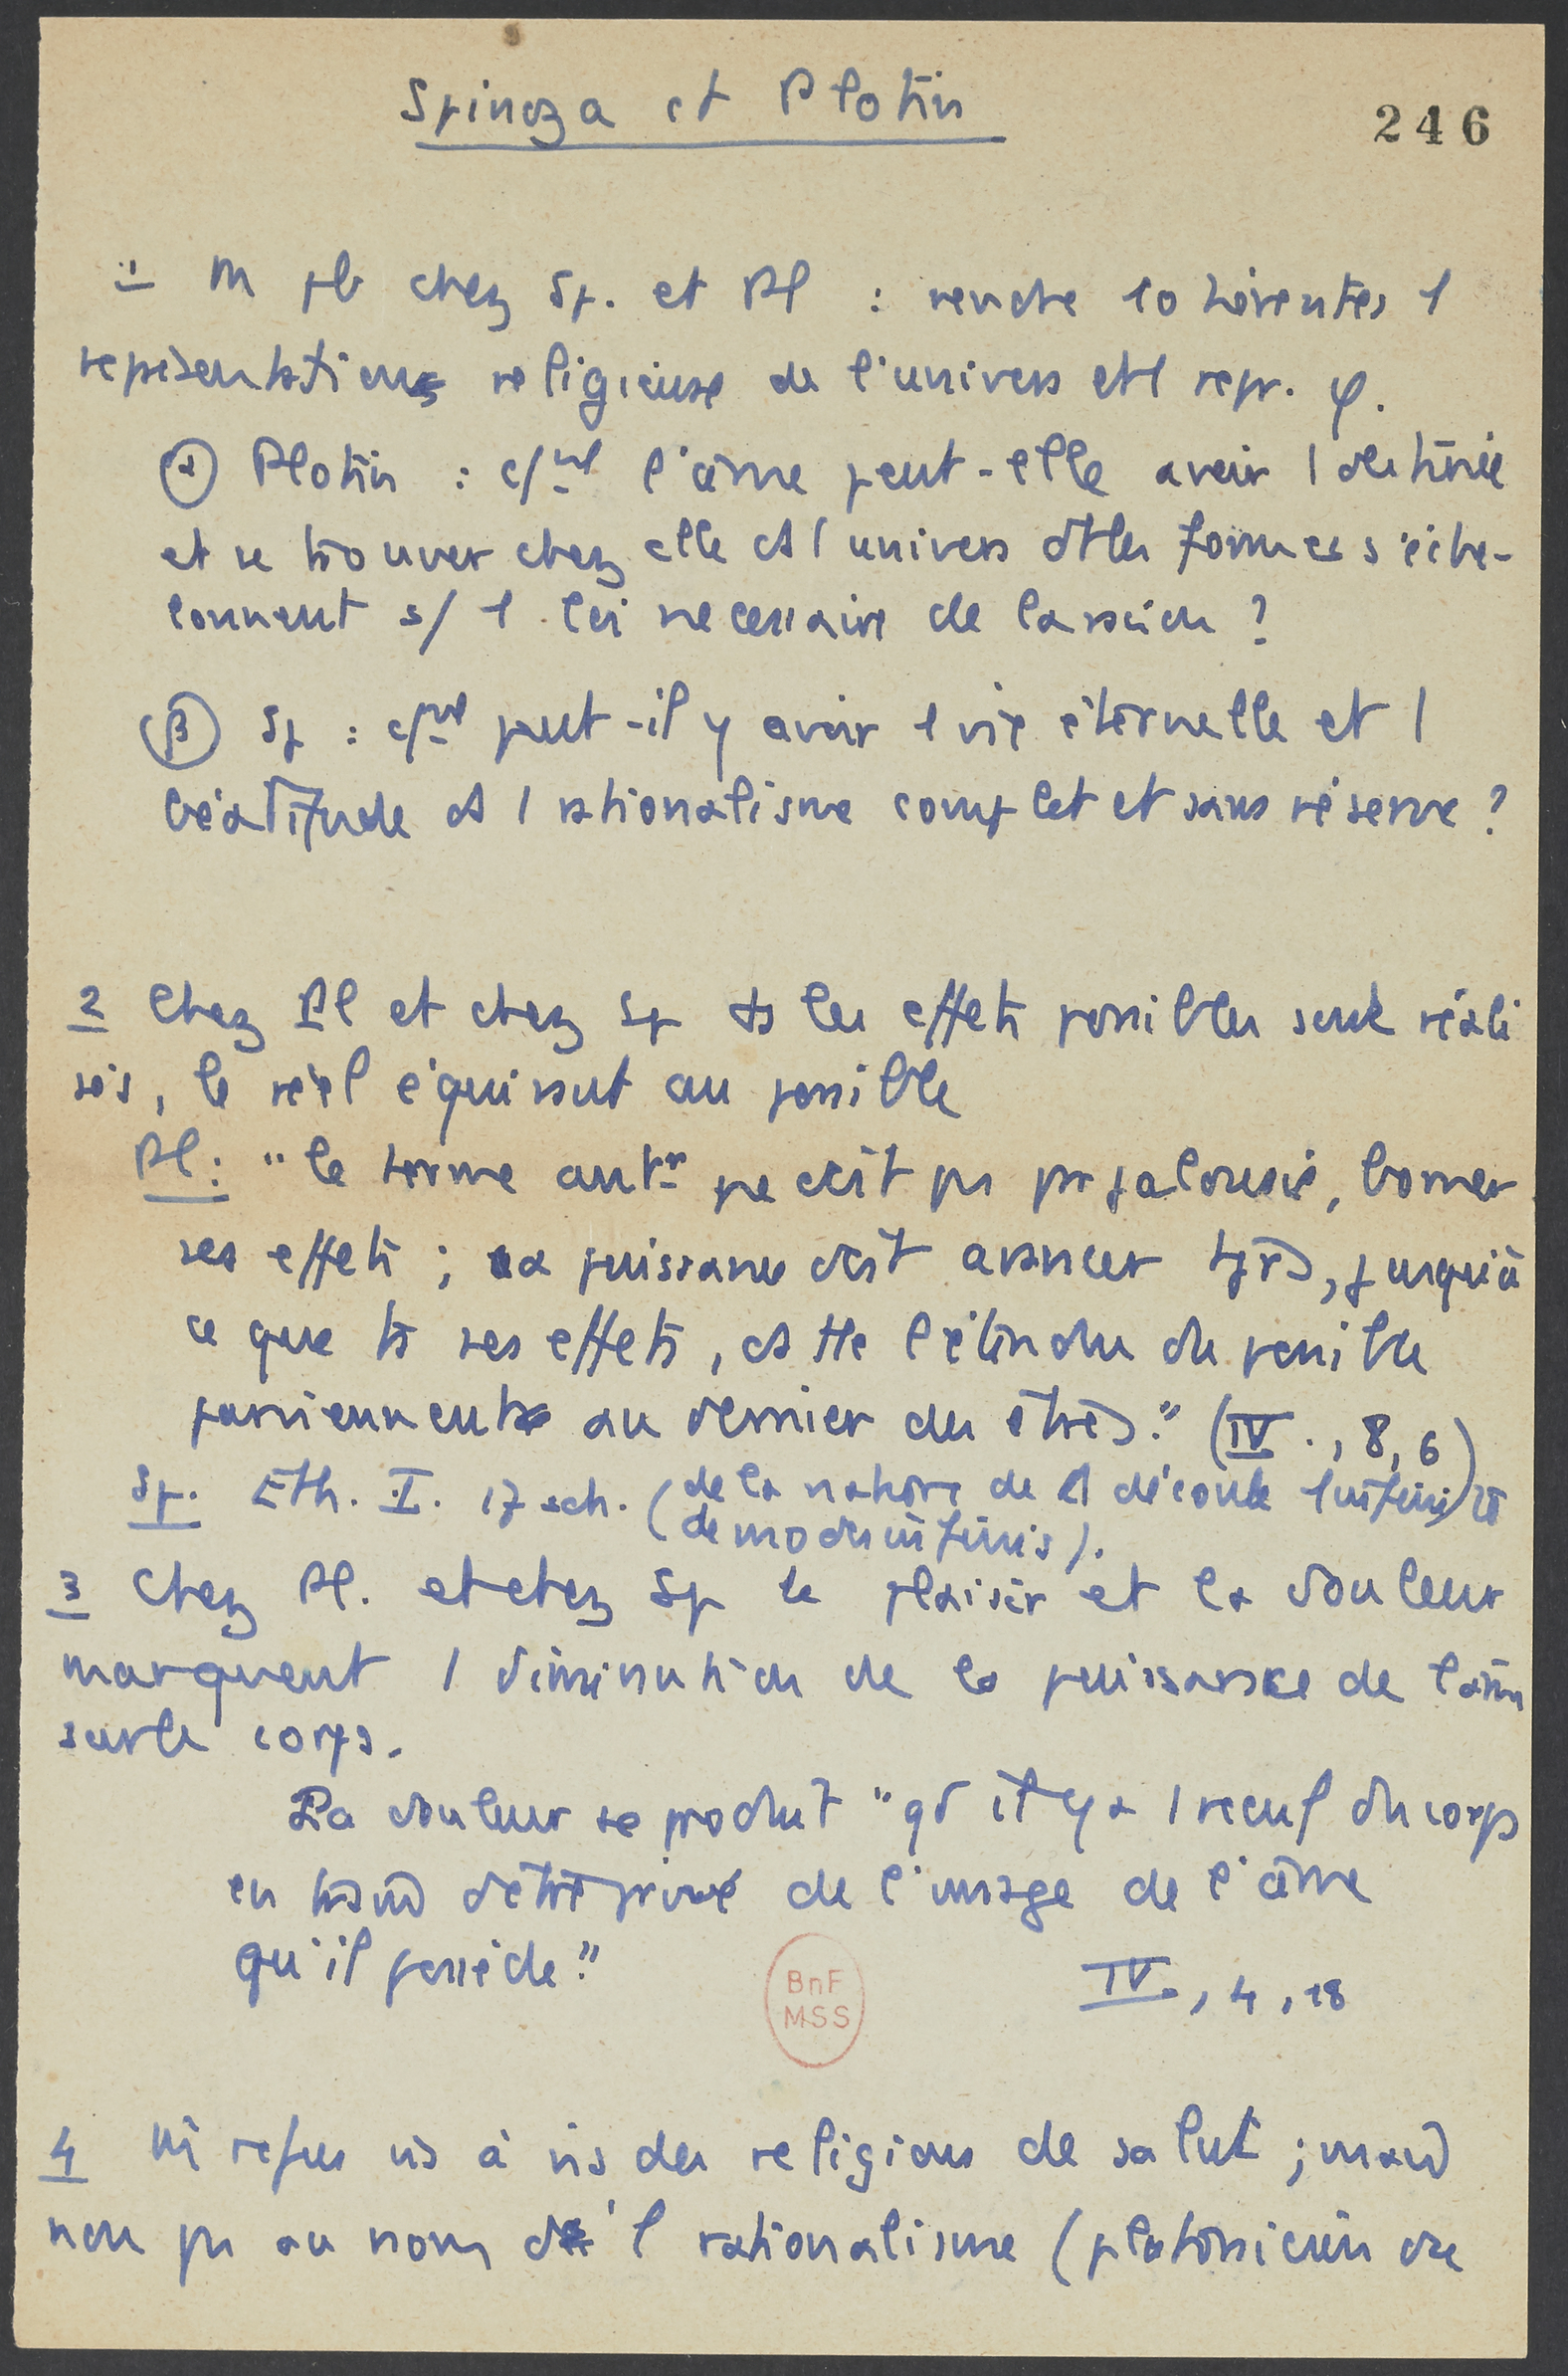 Spinoza et Plotin
246
1 m pb chez Sp. et Pl : rendre cohérentes 1
représentation religieuse de l'univers et 1 repr. φ.
α Plotin : c/nt l'âme peut-elle avoir 1 destinée
et se trouver chez elle ds 1 univers dt les formes s'éche-
lonnent s/ 1 loi necessaire de la raison ?
β Sp : c/nt peut-il y avoir 1 vie éternelle et 1
béatitude ds 1 rationalisme complet et sans réserve ?
2 Chez Pl et chez Sp ts les effets possibles sont réali
sés, le réel équivaut au possible
Pl : "le terme antr ne doit pas par jalousie, borner
ses effets ; sa puissance doit avancer tjrs, jusqu'à
ce que ts ses effets, ds tte l'étendue du possible
parviennent au dernier des êtres." (IV., 8, 6)
Sp. Eth. I. 17 sch. (de la nature de découle 1 infinité
de modes infinis).
3 Chez Pl. et chez Sp le plaisir et la douleur
marquent 1 diminution de la puissance de l'âme
sur le corps.
La douleur se produit "qd il y a 1 recul du corps
en train d'être privé de l'image de l'âme
qu'il possède."
IV., 4, 18
BnF
MSS
4 m refus vis à vis des religions de salut ; mais
non pas au nom d' 1 rationalisme (platonicien ou